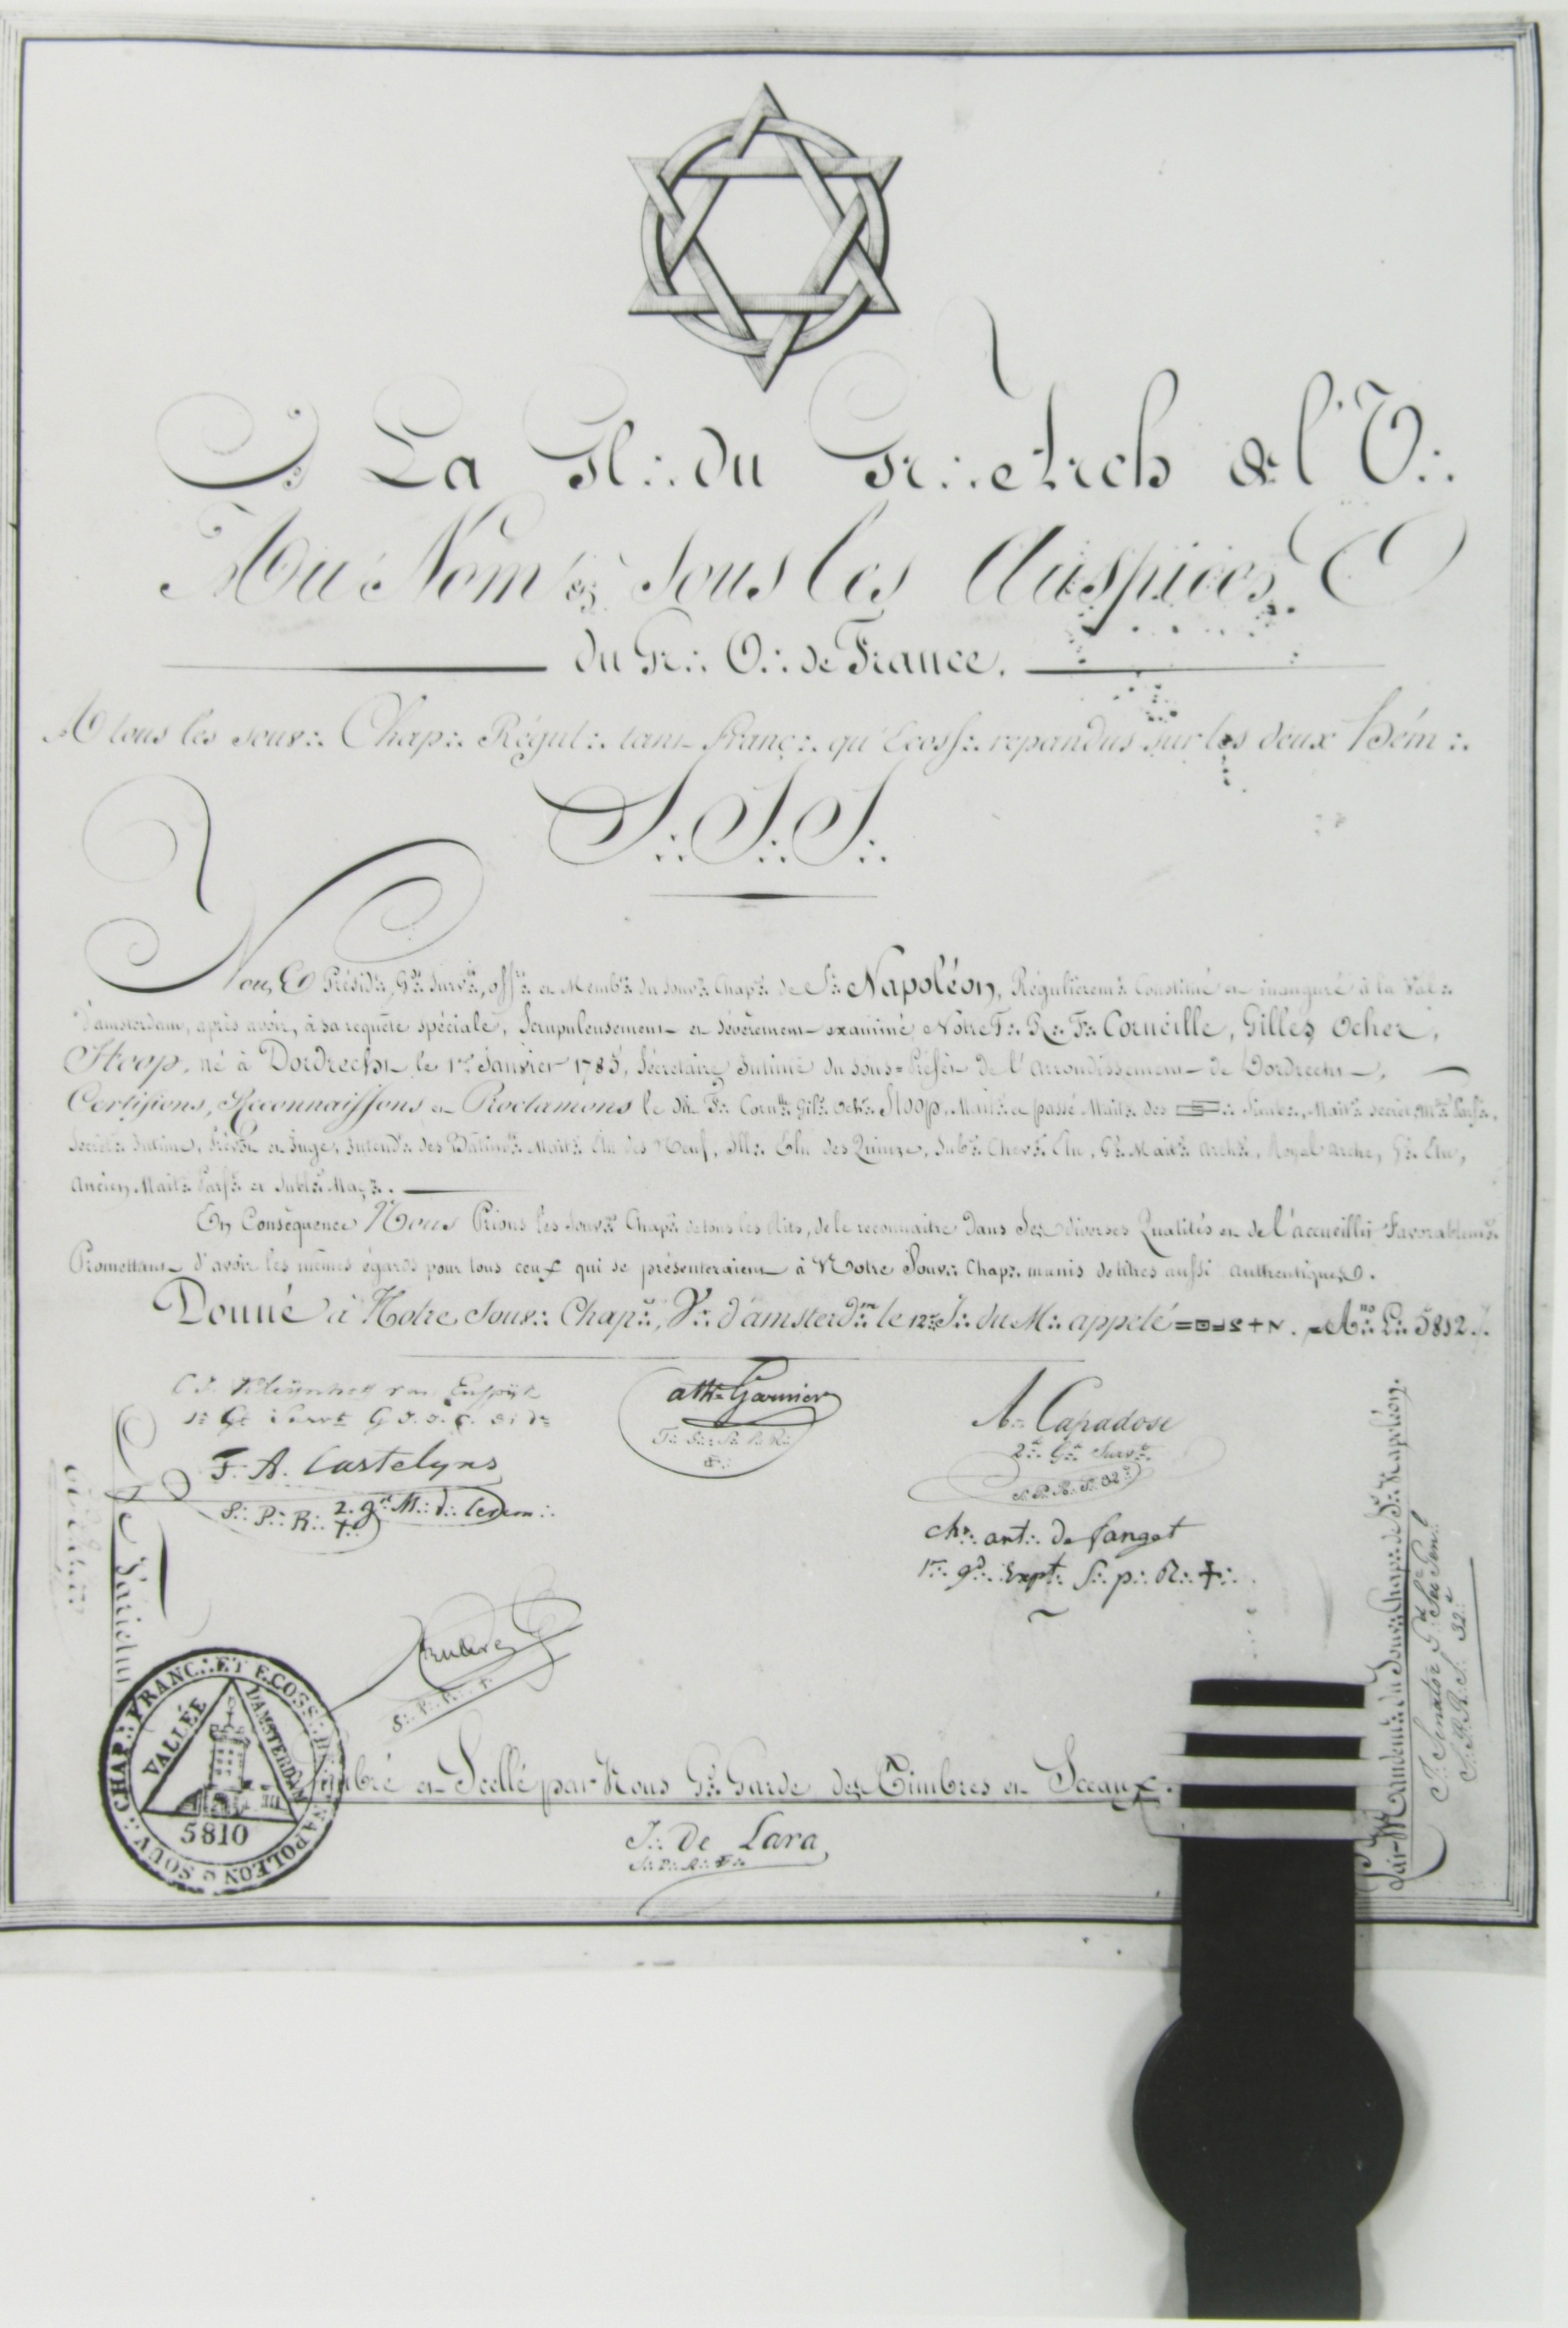 A La Gl∴ du Gr∴ Arch de l'U∴
Au Nom et sous les Auspices
du Gr∴ O∴ de France.
A tous les souv∴ Chap∴ Régul∴ tant Franç∴ qu'Ecoss∴ repandus sur les deux Hém∴
S∴ S∴ S∴
Nous Présid∴, Gds Surv∴, off∴ et Memb∴ du Souv∴ Chap∴ de St Napoléon, Régulièrem∴ Constitué et inauguré à la Val∴
d'amsterdam, après avoir, à sa requête spéciale, Scrupuleusement et Sévèrement examiné Notre T∴ R∴ F∴ Corneille, Gilles Ocher,
Stoop, né à Dordrecht le 1er Janvier 1785, Sécretaire Intime du Sous=Préfet de l'Arrondissement de Dordrecht,
Certifions, Reconnaissons et Proclamons le dit F∴ Corn∴ Gil∴ Och∴ Stoop, Mait∴ et passé Mait∴ des ∴ Simb∴, Mait∴ Secret, Mait∴ Parf∴,
Secrét∴ Intime, Prév∴ et Juge, Intend∴ des Bâtim∴ Mait∴ Elu des Neuf, Ill∴ Elu des Quinze, Subl∴ Chev∴ Elu, Gd Mait∴ Arch∴, Royal Arche, Gd Elu,
Ancien Mait∴ Parf∴ et Subl∴ Maç∴.
En Conséquence Nous Prions les Souv∴ Chap∴ de tous les Rits, de le reconnaitre Dans Ses diverses Qualités et de l'accueillir Favorablem∴
Promettant d'avoir les mêmes égards pour tous ceux qui se présenteraient à Notre Souv∴ Chap∴ munis de titres aussi authentiques.
Donné à Notre Souv∴ Chap∴, V∴ d'amsterdm le 12e J∴ du M∴ appelé . Ano L∴ 5812.
1r Gd Surv∴
F. A. Castelyns
S∴ P∴ R∴ ✝∴ 2. gd M∴ d∴ Cerem∴
ath∴ Garnier
A. Capadose
2d∴ Gd∴ Surv∴
S∴ P∴ R∴ S∴ 32e
ch∴ ant∴ de Sanget
1er∴ gd∴ Expt∴ S∴ p∴ R∴ ✝∴
S∴ P∴ R∴ ✝
Par Mandemt du Souv∴ Chap∴ de St Napoléon.
J∴ Senator Gd Secr Genl
S∴ P∴ R∴ S∴ 32e
SOUV∴ CHAP∴ FRANC∴ ET ECOSS∴ DE St NAPOLEON
VALLÉE
D'AMSTERDAM
5810
Timbré et Scellé par Nous Gd Garde des Timbres et Sceaux.
J∴ De Lara
S∴ P∴ R∴ ✝∴